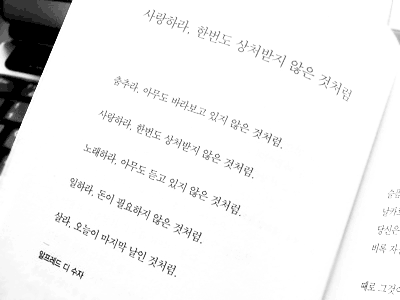 사랑하라, 한번도 상처받지 않은 것처럼
춤추라, 아무도 바라보고 있지 않은 것처럼.
사랑하라, 한번도 상처받지 않은 것처럼.
노래하라, 아무도 듣고 있지 않은 것처럼.
일하라, 돈이 필요하지 않은 것처럼.
살라, 오늘이 마지막 날인 것처럼.
알프레드 디 수자
당신은
비록 자
때로 그것이